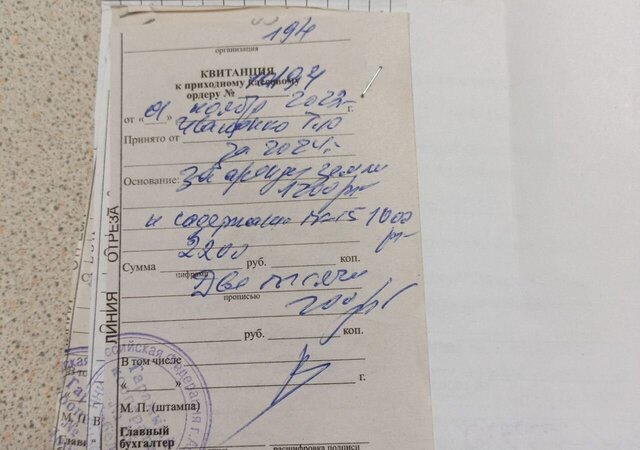 194
организация
КВИТАНЦИЯ
к приходному кассовому
ордеру №
от « 01 » ноября 2022 г.
Принято от Иващенко
за 2024г.
Основание: За аренду земли
1200 р
и содержание 1000
р
2200
Сумма руб. коп.
цифрами
Две тысячи
прописью
200 р
руб. коп.
В том числе
« » г.
М. П. (штампа)
Главный
бухгалтер
расшифровка подписи
ЛИНИЯ ОТРЕЗА